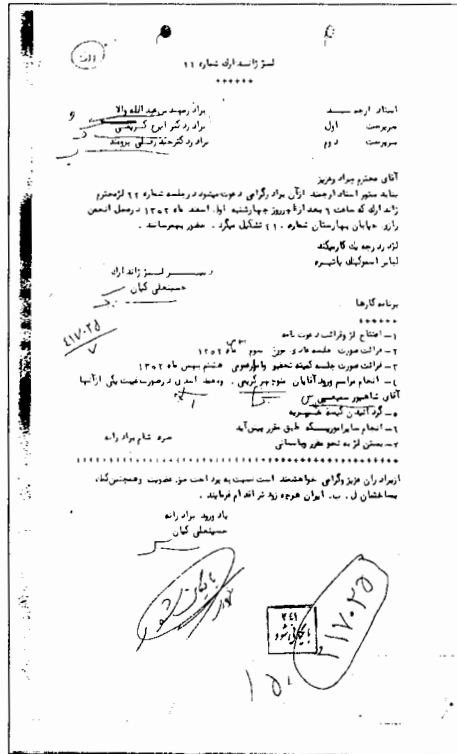 الف
لژ ژاندارك شماره ۱۱
******
استاد ارجمند برادر سپهبد عبدالله والا
سرپرست اول برادر دكتر
سرپرست دوم برادر دكتر برومند
آقای محترم برادر عزیز
بنابه دستور استاد ارجمند ازآن برادرگرامی دعوت میشود درجلسه شماره ۶۲ لژمحترم
ژاندارك كه ساعت ۶ بعدازظهرروز چهارشنبه اول اسفند ماه ۱۳۵۲ درمحل انجمن
رازی خیابان بهارستان شماره ۲۱۰ تشكیل میگردد . حضور بهمرسانند .
لژدردرجه یك كارمیكند
لباس اسموكینگ یاتیره
دبیر لژ ژاندارك
حسینعلی كیان
برنامه كارها
******
۴۱۷۰۲۵
۷
۱ـ افتتاح لژ وقرائت دعوت نامه
۲ـ قرائت صورت جلسه عادی مورخ سوم ماه ۱۳۵۲
۳ـ قرائت صورت جلسه كمیته تحقیق هشتم بهمن ماه ۱۳۵۲
۴ـ انجام مراسم ورود آقایان منوچهر كریمی . و درصورت غیبت یكی ازآنها
آقای شاهپور سمیعی
۵ـ گردانیدن كیسه خیریه
۶ـ انجام سایراموریكه طبق مقرر پیش آید
۷ـ بستن لژ به نحو مقرر وباستانی صرف شام برادرانه
ازبرادران عزیز وگرامی خواهشمند است نسبت به پرداخت حق عضویت وهمچنین كمك
بساختمان ل . ب . ایران هرچه زودتر اقدام فرمایند .
بادرود برادرانه
حسینعلی كیان
بایگانی شود
۲۴۱
بایگانی شود
۴۱۷۰۲۵